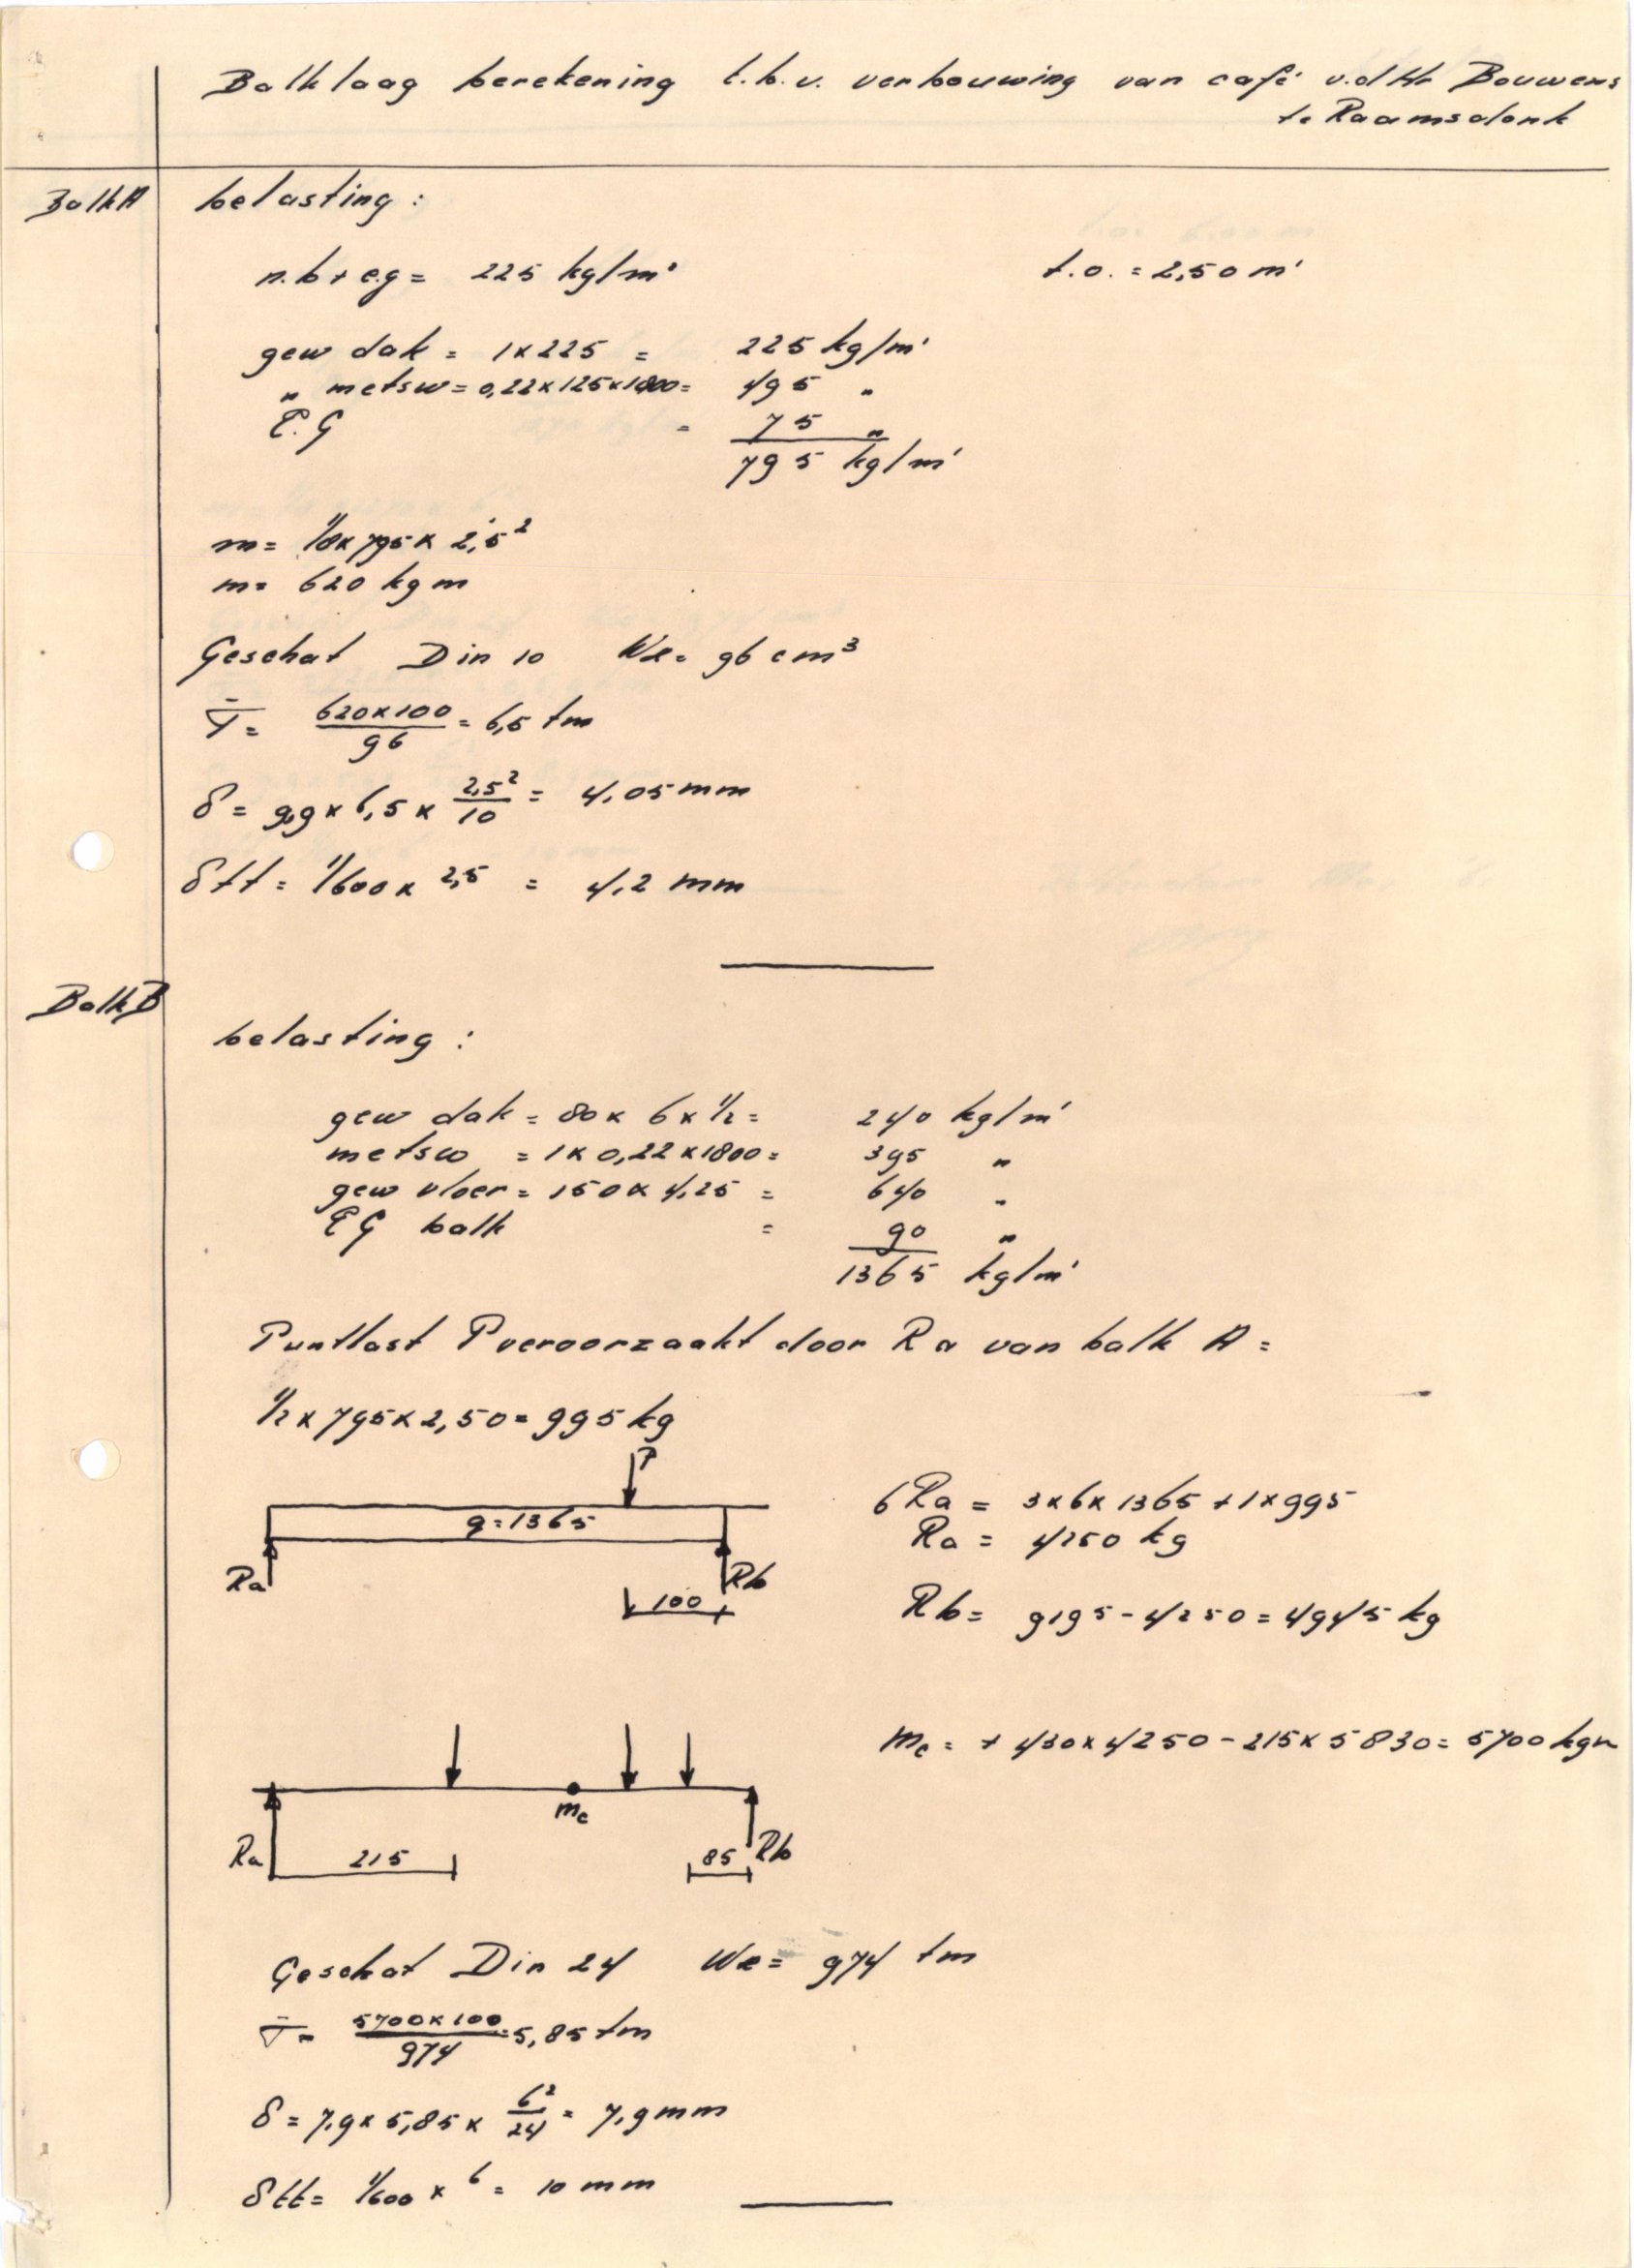 Balklaag berekening t.b.v. verbouwing van café v.d Hr Bouwens
te Raamsdonk
Balk A
belasting :
n.b + e.g = 225 kg/m¹
t.o. = 2,50 m¹
gew dak = 1 x 225 = 225 kg/m¹
" metsw = 0,22 x 125 x 1800 = 495 "
E.G = 75 "
795 kg/m¹
m = 1/8 x 795 x 2,5²
m = 620 kgm
Geschat Din 10 Wx = 96 cm³
620 x 100 / 96 = 6,5 tm
δ = 9,9 x 6,5 x 2,5² / 10 = 4,05 mm
δtt = 1/600 x 2,5 = 4,2 mm
Balk B
belasting :
gew dak = 80 x 6 x 1/2 = 240 kg/m¹
metsw = 1 x 0,22 x 1800 = 395 "
gew vloer = 150 x 4,25 = 640 "
EG balk = 90 "
1365 kg/m¹
Puntlast P veroorzaakt door Ra van balk A =
1/2 x 795 x 2,50 = 995 kg
P
q = 1365
Ra
Rb
100
6 Ra = 3 x 6 x 1365 + 1 x 995
Ra = 4250 kg
Rb = 9195 - 4250 = 4945 kg
mc = + 430 x 4250 - 215 x 5830 = 5700 kgm
mc
Ra
215
85
Rb
Geschat Din 24 Wx = 974 tm
5700 x 100 / 974 = 5,85 tm
δ = 7,9 x 5,85 x 6² / 24 = 7,9 mm
δtt = 1/600 x 6 = 10 mm